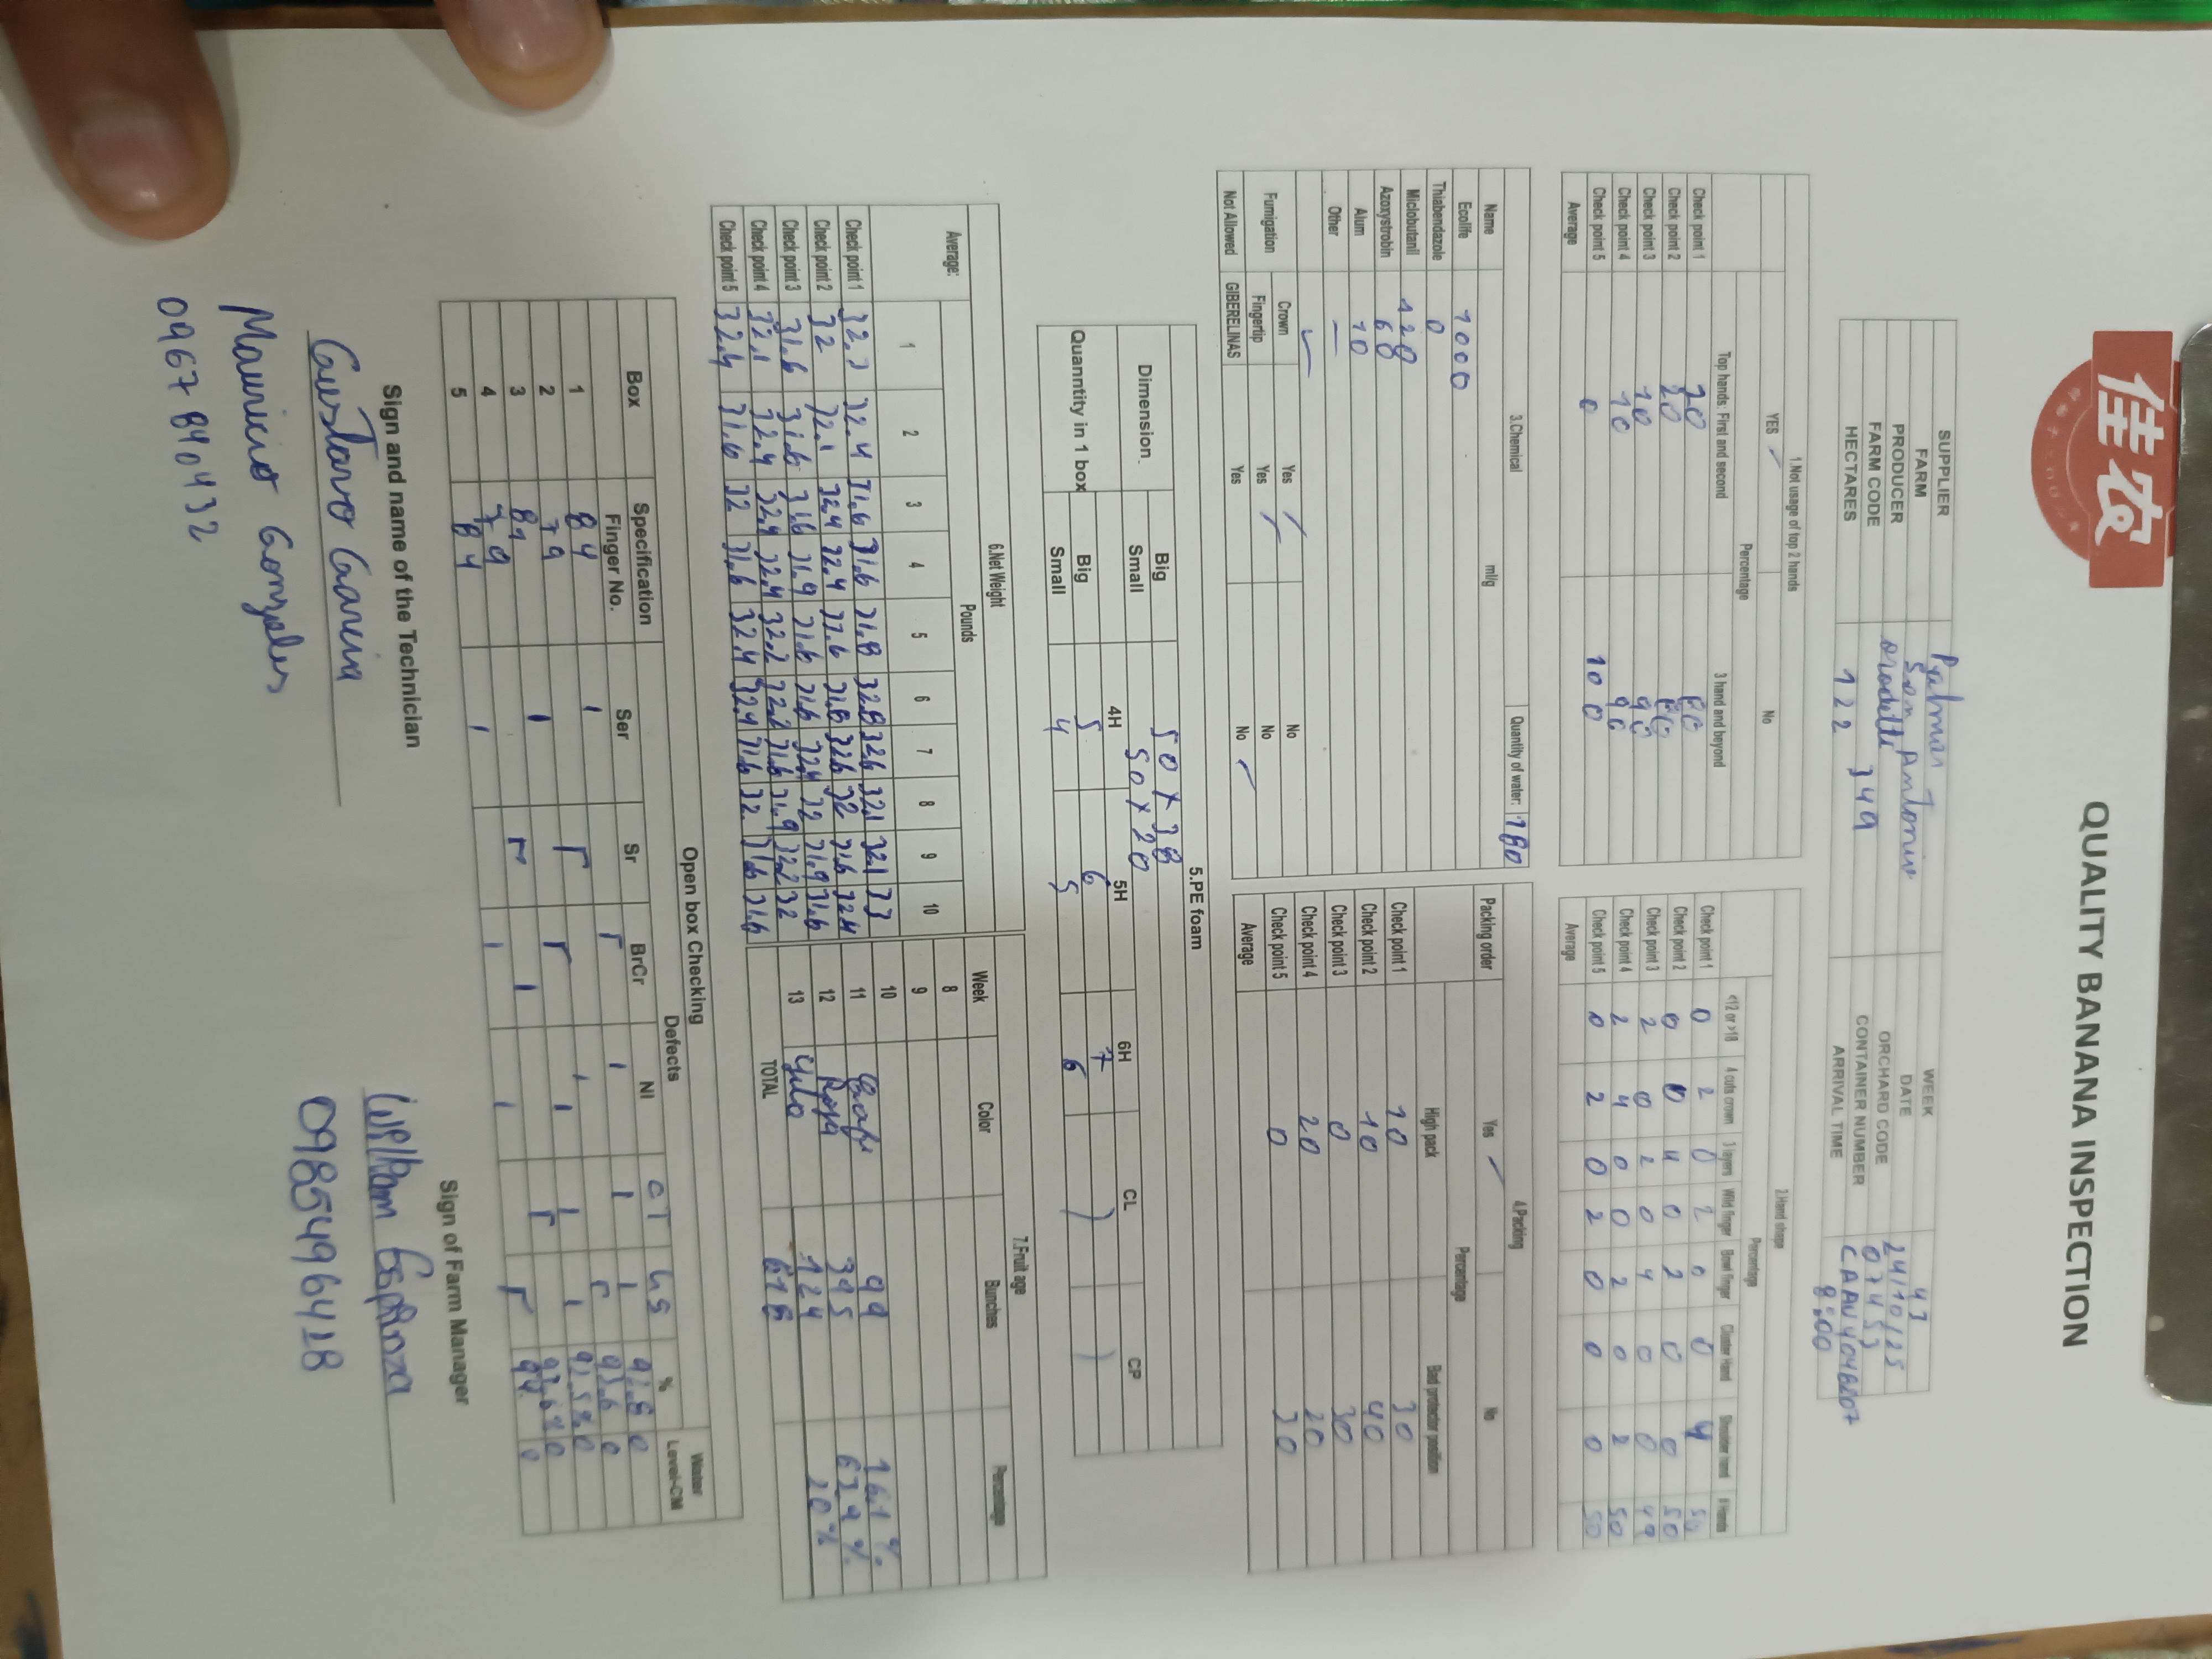 佳农
QUALITY BANANA INSPECTION
SUPPLIER Palmar WEEK 43
FARM San Antonio DATE 24/10/25
PRODUCER Orodelti ORCHARD CODE 07453
FARM CODE 349 CONTAINER NUMBER CAAU4046207
HECTARES 122 ARRIVAL TIME 8:00
1.Not usage of top 2 hands
YES ✓ No
Percentage
Top hands. First and second 3 hand and beyond
Check point 1 20 80
Check point 2 20 80
Check point 3 10 90
Check point 4 10 90
Check point 5 0 100
Average
2.Hand shape
Percentage
<12 or >18 4 cuts crown 3 layers Wild finger Bowl finger Cluster Hand Shoulder hand # Hands
Check point 1 0 2 0 2 0 0 4 50
Check point 2 0 0 4 0 2 0 0 50
Check point 3 2 0 2 0 4 0 0 49
Check point 4 2 4 0 0 2 0 2 50
Check point 5 0 2 0 2 0 0 0 50
Average
3.Chemical
Name ml/g Quantity of water: 180
Ecolife 1000
Thiabendazole 0
Miclobutanil 428
Azoxystrobin 60
Alum 10
Other —
Fumigation Crown Yes ✓ No
Fingertip Yes ✓ No
Not Allowed GIBERELINAS Yes No ✓
4.Packing
Packing order Yes ✓ No
Percentage
High pack Bad protector position
Check point 1 10 30
Check point 2 10 40
Check point 3 0 30
Check point 4 20 20
Check point 5 0 30
Average
5.PE foam
Dimension. Big 50 x 38
Small 50 x 20
Quanntity in 1 box 4H 5H 6H CL CP
Big 5 6 7
Small 4 5 6
6.Net Weight
Average: Pounds
1 2 3 4 5 6 7 8 9 10
Check point 1 32.4 31.6 31.6 31.8 32.8 32.6 32.1 32.1 33
Check point 2 32 32.1 32.4 32.4 31.8 32.6 32 31.6 32.4
Check point 3 31.6 31.6 31.6 31.9 31.6 31.6 32.4 32 31.9 31.6
Check point 4 32.1 32.4 32.4 32.4 32.2 32.2 31.6 31.9 32.2 32
Check point 5 32.4 31.6 32 31.6 32.4 32.4 31.6 32. 31.6 31.6
7.Fruit age
Week Color Bunches Percentage
8
9
10
11 Cafe 99 16.1 %
12 Roja 395 63.9 %
13 124 20 %
TOTAL 618
Open box Checking
Box Specification Defects Water
Finger No. Ser Sr BrCr NI CT LS % Level-CM
1 84
2 79
3 84
4 79
5 84
Sign and name of the Technician
Gustavo Garcia
Mauricio Gonzales
0967890432
Sign of Farm Manager
William Espinza
0985496428